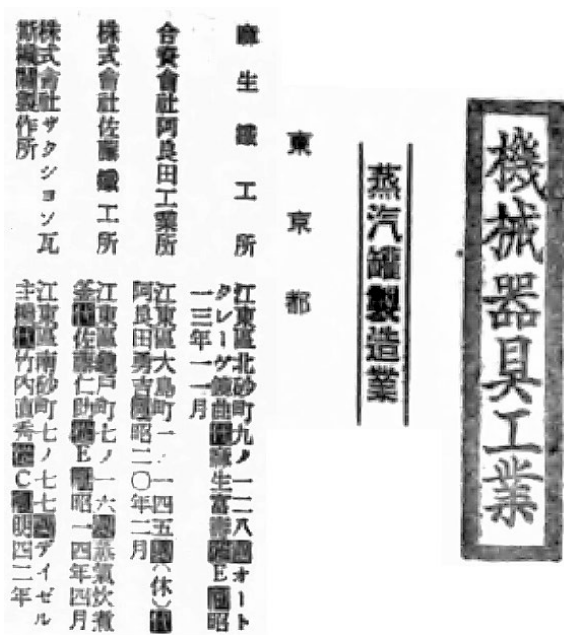 機械器具工業
蒸汽罐製造業
東京都
麻生鐵工所
江東區北砂町九ノ一二八 オート
クレーヴ 麻生富壽 E 昭
一三年一一月
合資會社阿良田工業所
江東區大島町一ノ一四五 (休)
阿良田勇吉 昭二〇年二月
株式會社佐藤鐵工所
江東區龜戸町七ノ一六 蒸氣炊煮
釜 佐藤仁助 E 昭一四年四月
株式會社サクション瓦
斯機關製作所
江東區南砂町七ノ七七 デイゼル
主機 竹内直秀 C 明四二年